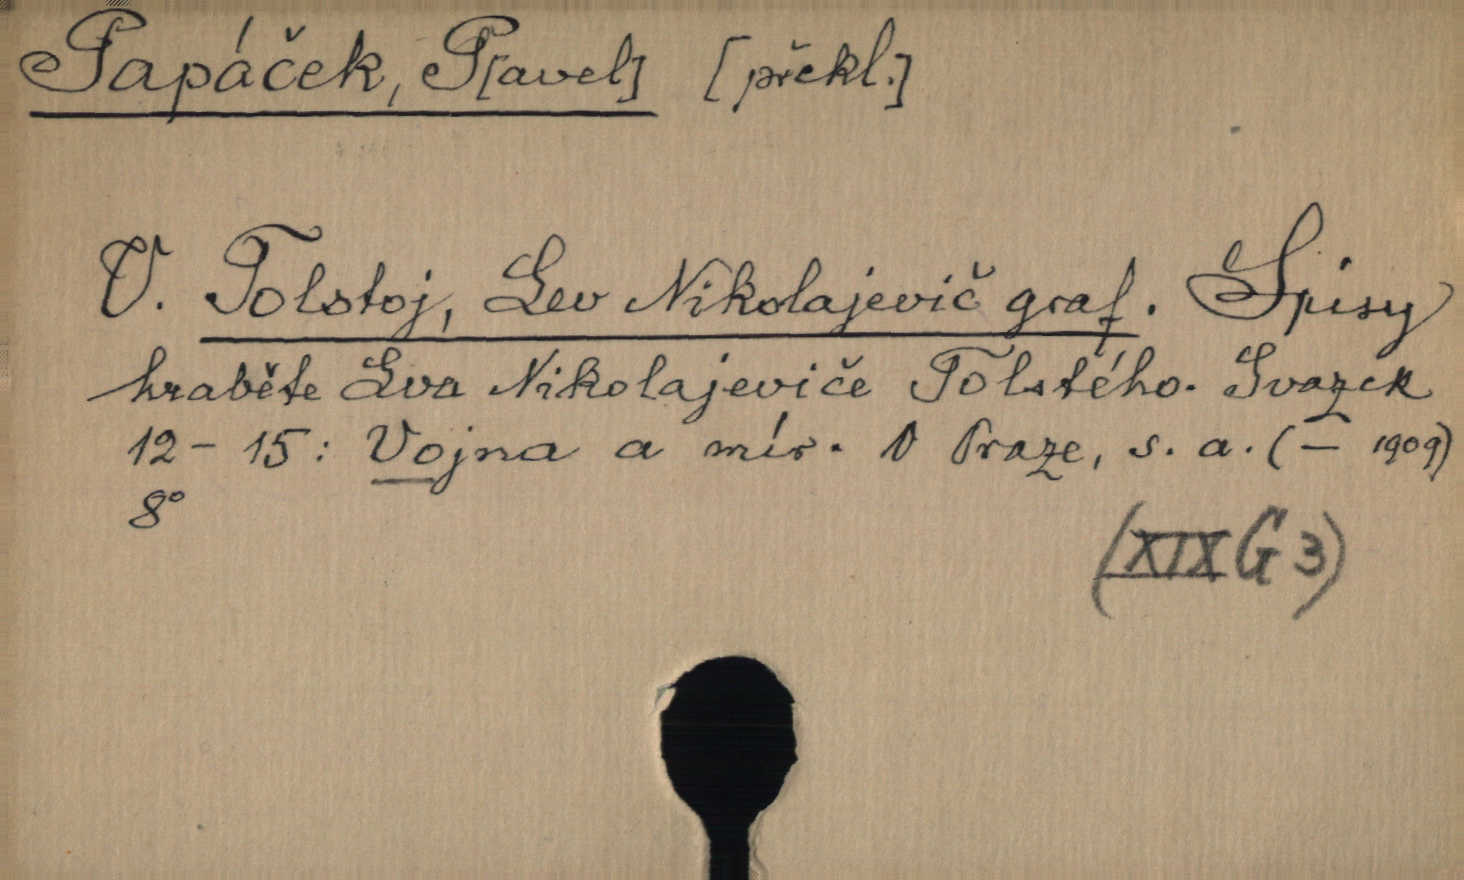 Papáček, P[avel] [překl.]
V. Tolstoj, Lev Nikolajevič graf. Spisy
hraběte Lva Nikolajeviče Tolstého. Svazek
12 - 15: Vojna a mír. V Praze, s. a. (— 1909)
8°
(XIX G 3)